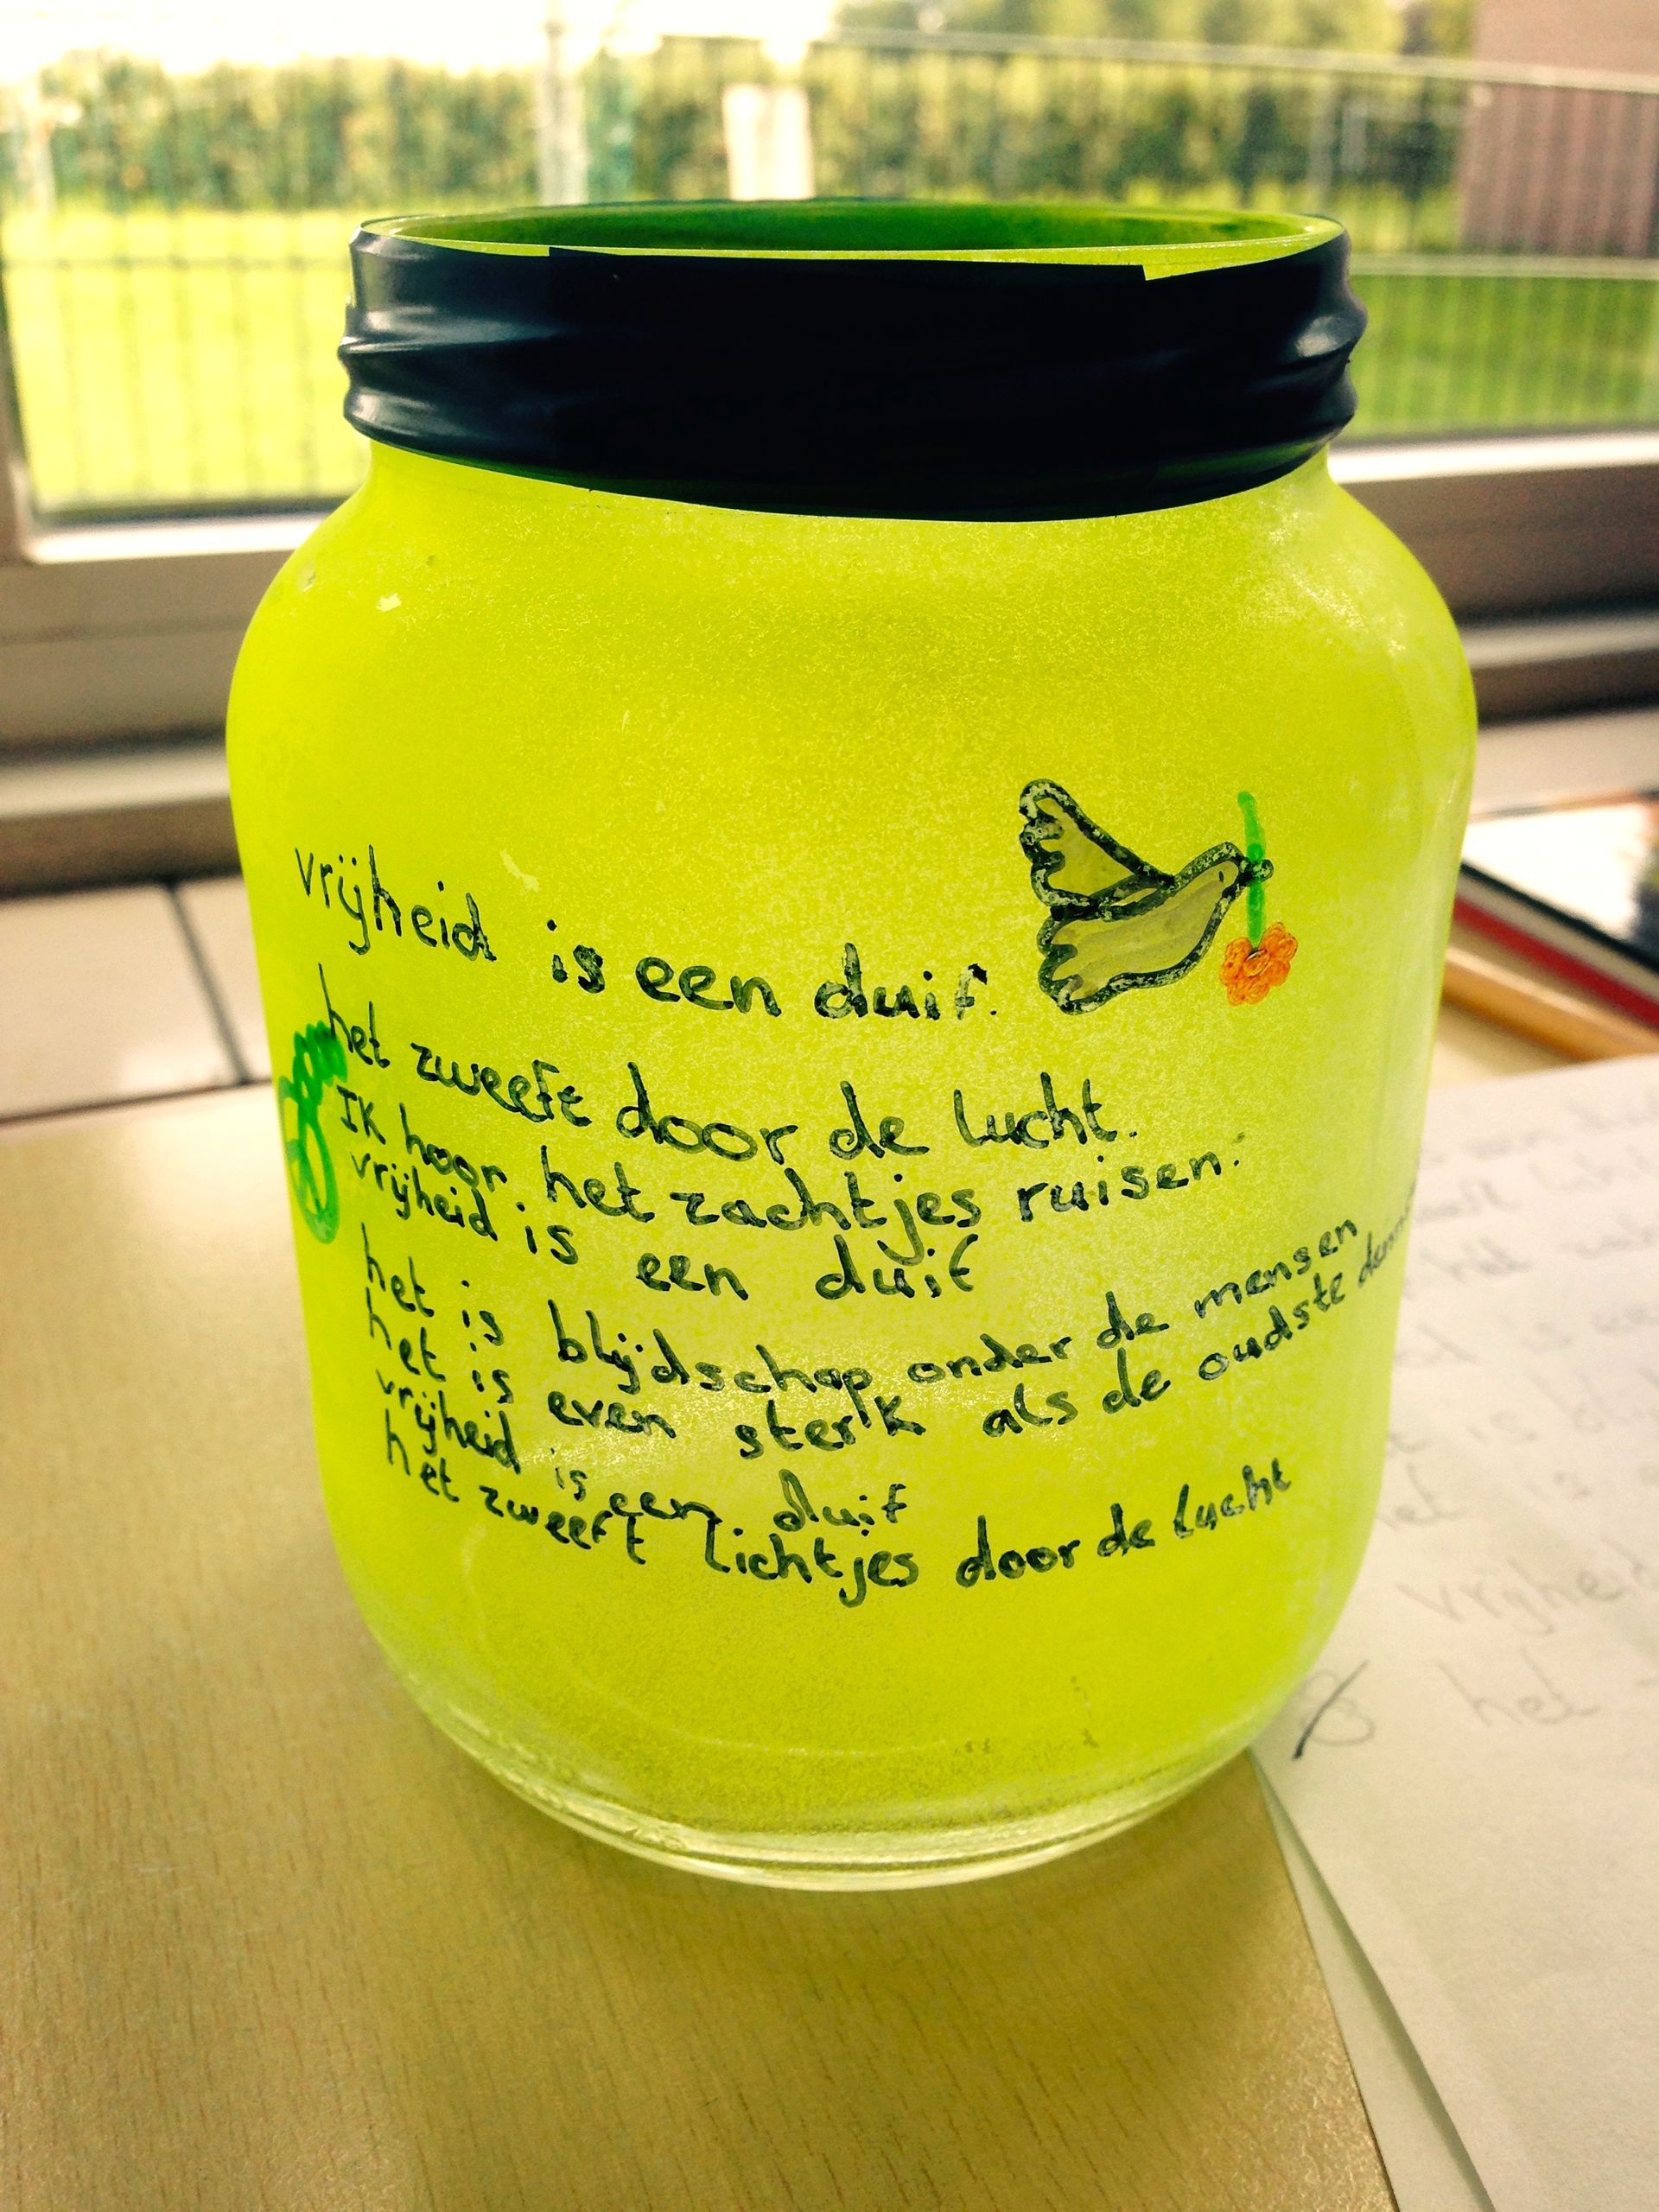 vrijheid is een duif.
het zweeft door de lucht.
Ik hoor het zachtjes ruisen.
vrijheid is een duif
het is blijdschap onder de mensen
het is even sterk als de oudste
vrijheid is een duif
het zweeft lichtjes door de lucht
vrijheid
het